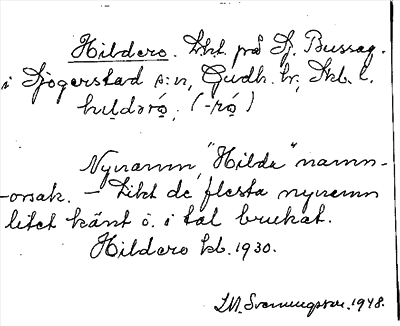 Hildero. Lht. på Sj. Bussag.
i Sjogerstad s:n, Gudh. hr, Skb. l.
hildărọ́, (-rọ̀)
Nynamn, "Hilda" namn-
-orsak. – Likt de flesta nynamn
litet känt o. i tal brukat.
Hildero kb. 1930.
I.M. Svenungsson. 1948.